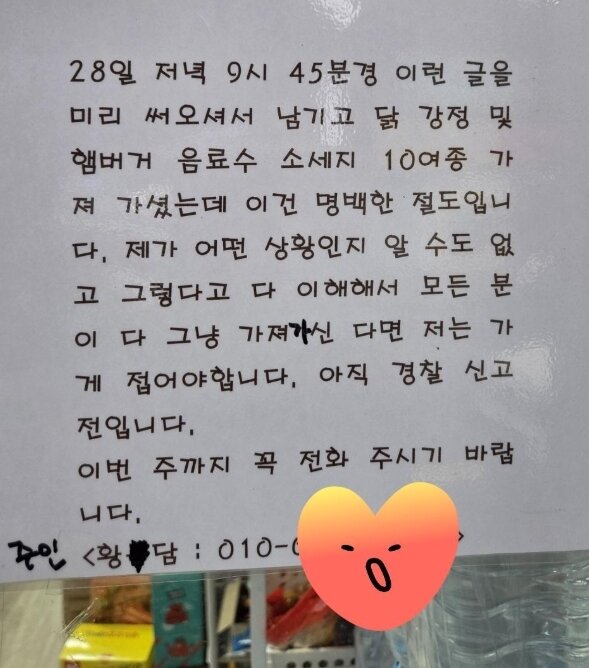 28일 저녁 9시 45분경 이런 글을
미리 써오셔서 남기고 닭 강정 및
햄버거 음료수 소세지 10여종 가
져 가셨는데 이건 명백한 절도입니
다. 제가 어떤 상황인지 알 수도 없
고 그렇다고 다 이해해서 모든 분
이 다 그냥 가져가신 다면 저는 가
게 접어야합니다. 아직 경찰 신고
전입니다.
이번 주까지 꼭 전화 주시기 바랍
니다.
주인 <황 담 : 010-